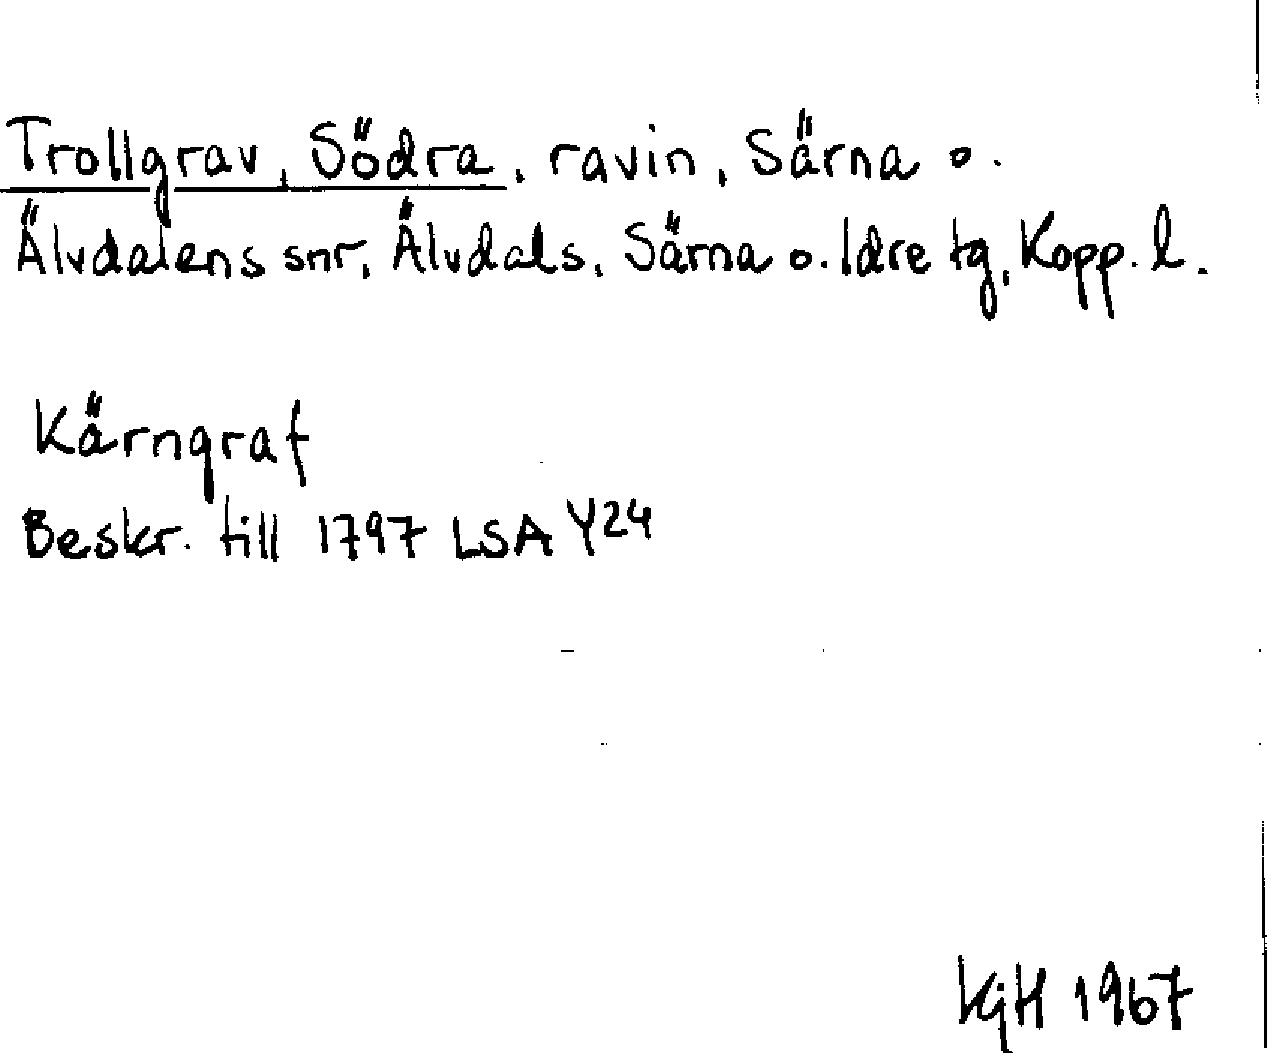 Trollgrav, Södra, ravin, Särna o.
Älvdalens snr, Älvdals, Särna o. Idre tg, Kopp. l.
Kärngraf
Beskr. till 1797 LSA Y24
KGH 1967